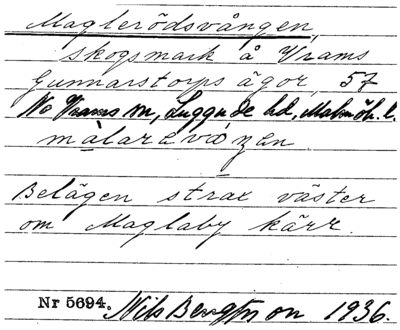 Maglerödsvången,
skogsmark å Vrams
Gunnarstorps ägor, 57
No Vrams sn, Luggude hd, Malmöh. l.
målaravɩọzẹn
Belägen strax väster
om Maglaby kärr.
Nr 5694. Nils Bengtsson 1936.